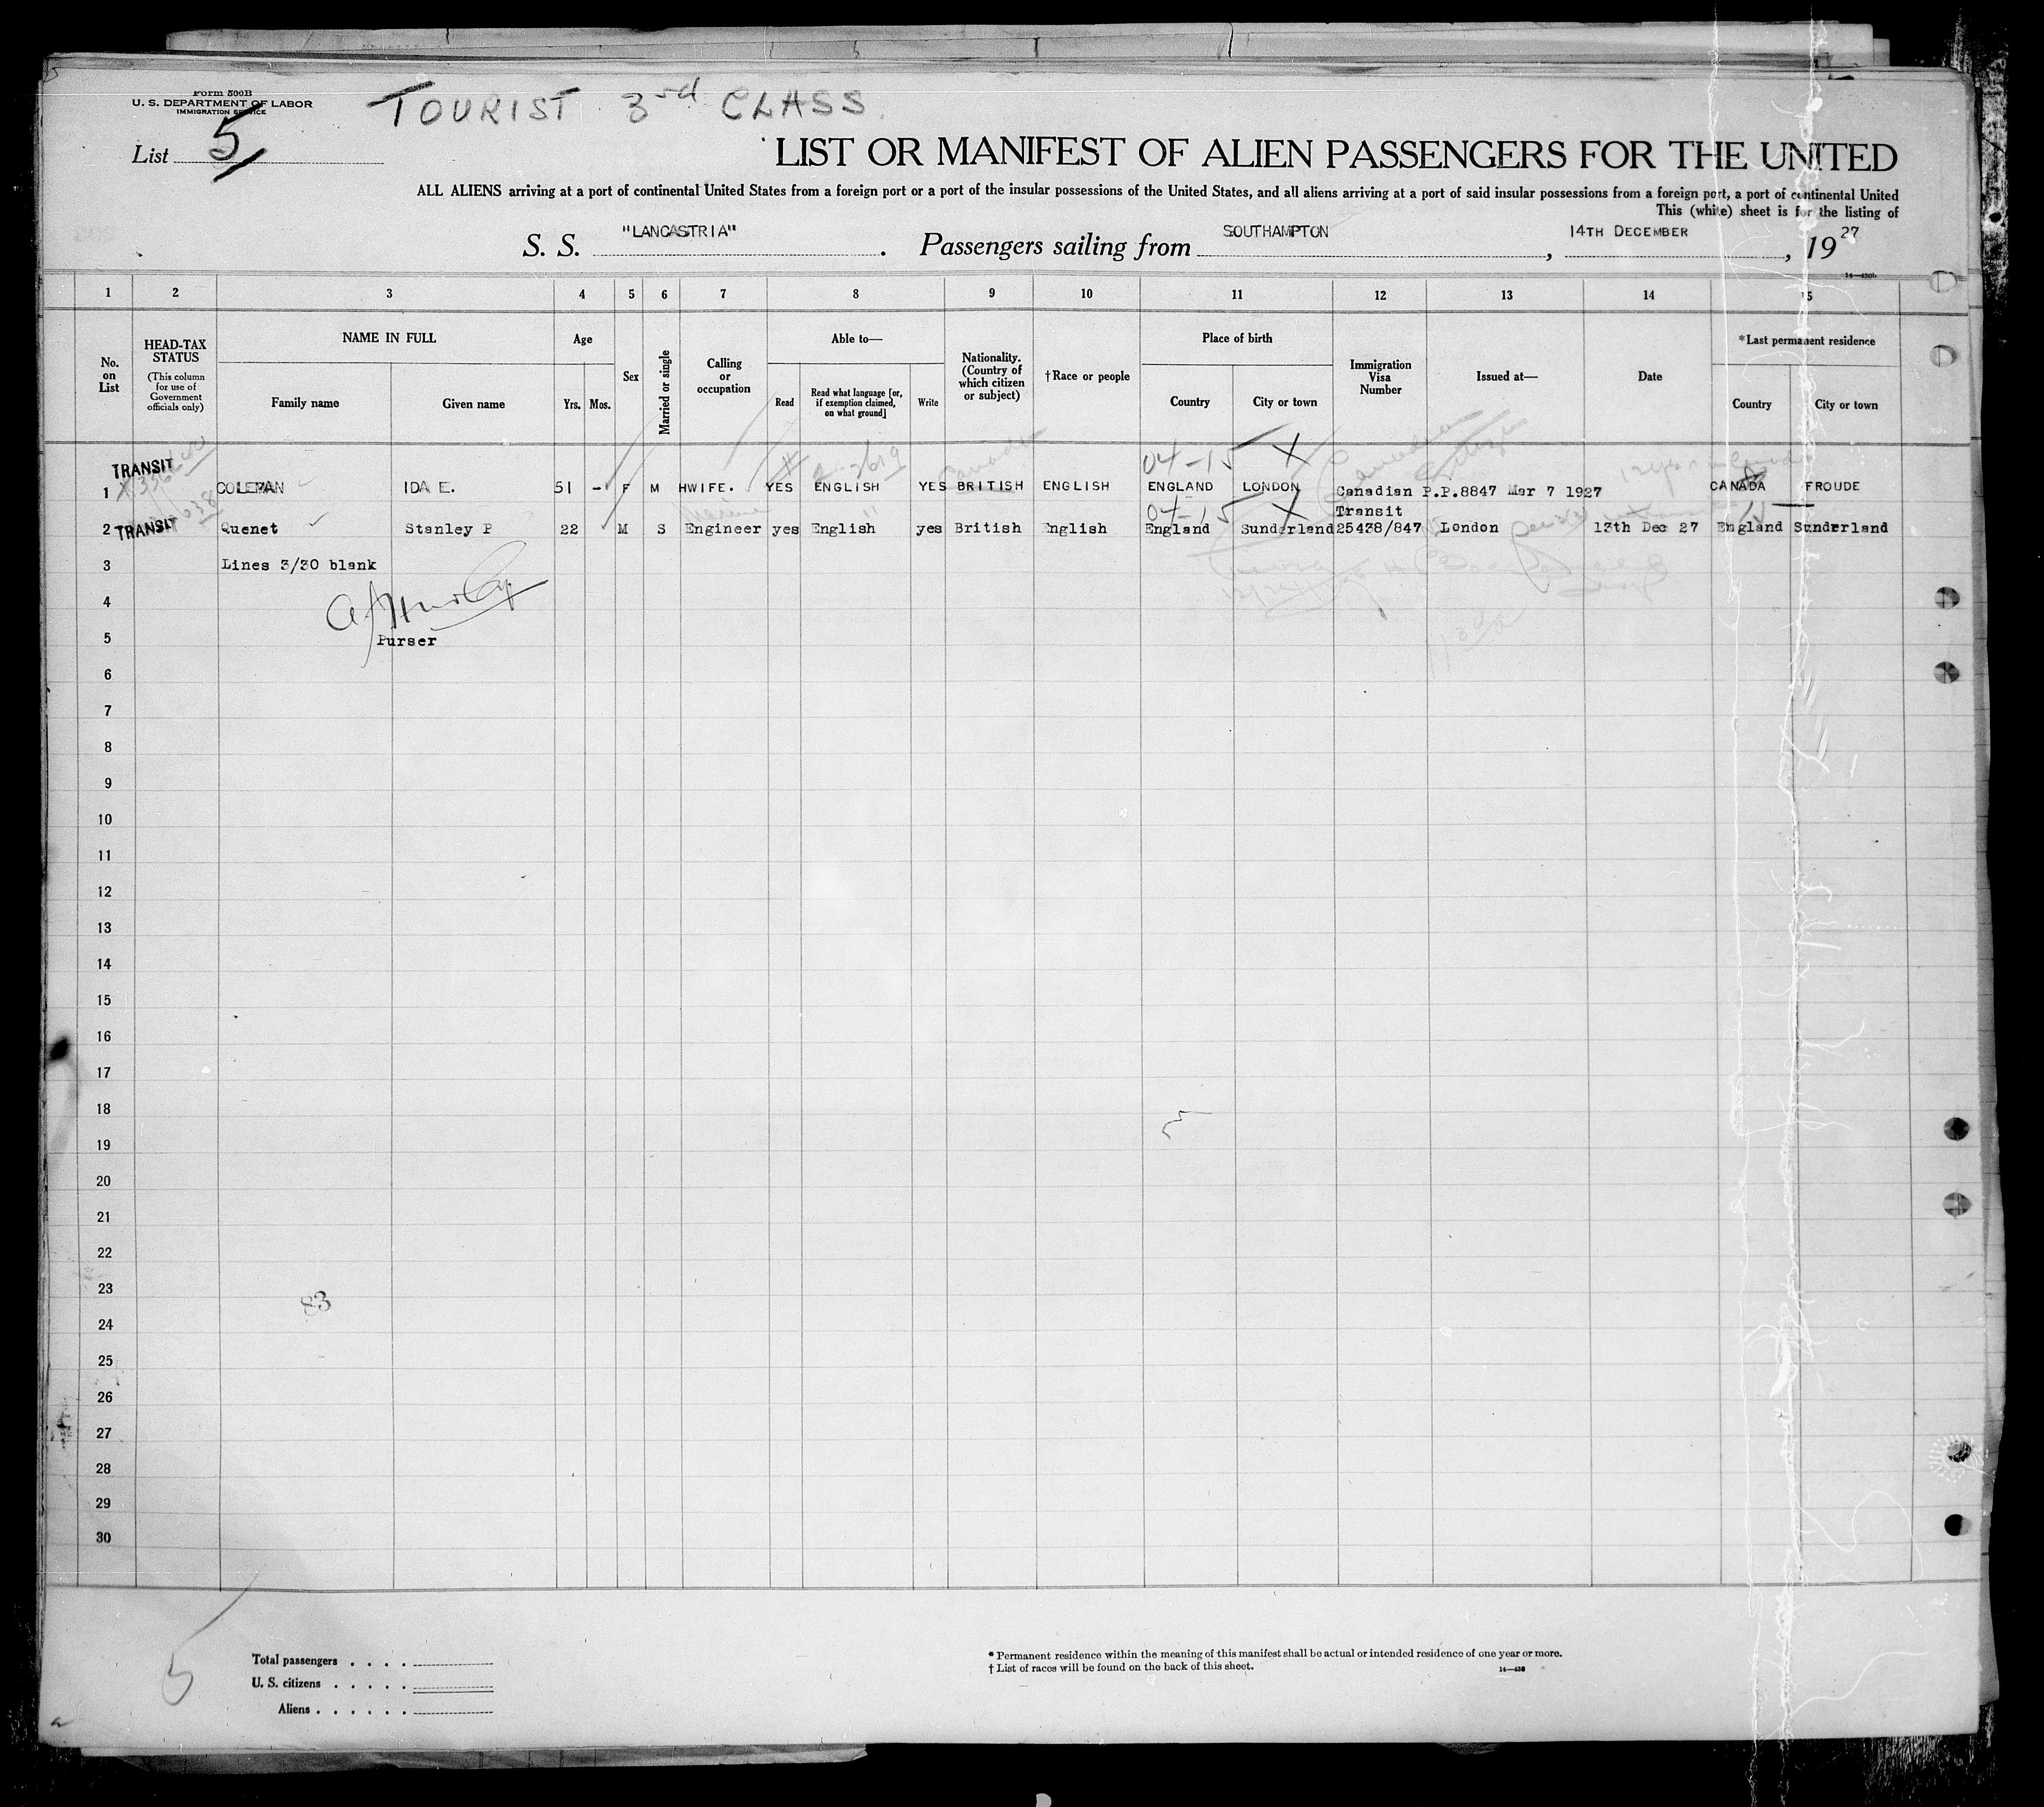 Form 500B
U. S. DEPARTMENT OF LABOR
IMMIGRATION SERVICE
TOURIST 3rd CLASS
List 5
LIST OR MANIFEST OF ALIEN PASSENGERS FOR THE UNITED
ALL ALIENS arriving at a port of continental United States from a foreign port or a port of the insular possessions of the United States, and all aliens arriving at a port of said insular possessions from a foreign port, a port of continental United
This (white) sheet is for the listing of
S. S. "LANCASTRIA". Passengers sailing from SOUTHAMPTON, 14TH DECEMBER, 1927
14—430b
1 2 3 4 5 6 7 8 9 10 11 12 13 14 15
No. on List
HEAD-TAX STATUS
(This column for use of Government officials only)
NAME IN FULL
Family name Given name
Age
Yrs. Mos.
Sex
Married or single
Calling or occupation
Able to—
Read
Read what language [or, if exemption claimed, on what ground]
Write
Nationality. (Country of which citizen or subject)
†Race or people
Place of birth
Country City or town
Immigration Visa Number
Issued at—
Date
*Last permanent residence
Country City or town
04-15 X
TRANSIT
1 COLEMAN IDA E. 51 - F M HWIFE. YES ENGLISH YES BRITISH ENGLISH ENGLAND LONDON Canadian P.P.8847 Mar 7 1927 CANADA FROUDE
04-15 X
TRANSIT
2 Quenet Stanley P 22 M S Engineer yes English yes British English England Sunderland Transit 25438/847 London 13th Dec 27 England Sunderland
3 Lines 3/30 blank
4
5 Purser
6
7
8
9
10
11
12
13
14
15
16
17
18
19
20
21
22
23
83
24
25
26
27
28
29
30
5
Total passengers . . . .
U. S. citizens . . . . .
Aliens . . . . . .
* Permanent residence within the meaning of this manifest shall be actual or intended residence of one year or more.
† List of races will be found on the back of this sheet.
14—430